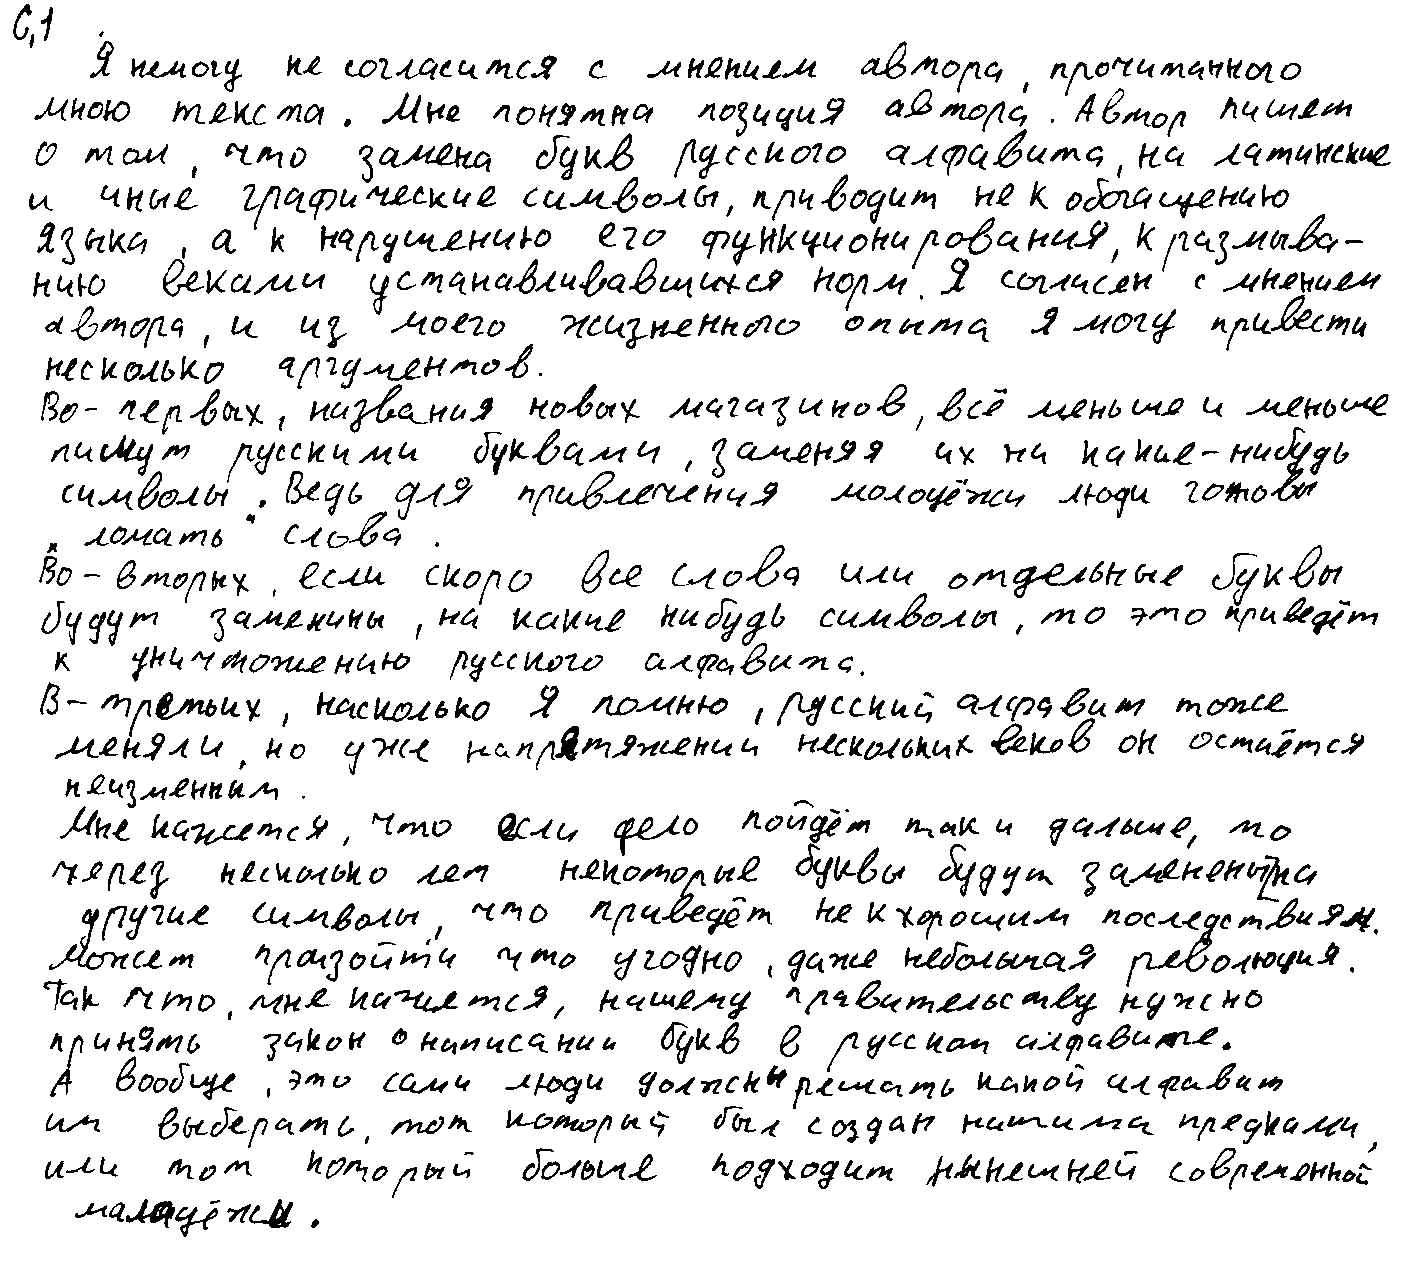 С,1
Я немогу не согласится с мнением автора, прочитанного
мною текста. Мне понятна позиция автора. Автор пишет
о том, что замена букв русского алфавита, на латинские
и иные графические символы, приводит не к обогащению
языка, а к нарушению его функционирования, к размыва-
нию веками устанавливавшихся норм. Я согласен с мнением
автора, и из моего жизненного опыта я могу привести
несколько аргументов.
Во-первых, названия новых магазинов, всё меньше и меньше
пишут русскими буквами, заменяя их на какие-нибудь
символы. Ведь для привлечения молодёжи люди готовы
„ломать" слова.
Во-вторых, если скоро все слова или отдельные буквы
будут заменины, на какие нибудь символы, то это приведёт
к уничтожению русского алфавита.
В-третьих, насколько я помню, русский алфавит тоже
меняли, но уже напрятяжении нескольких веков он остаётся
неизменным.
Мне кажется, что если дело пойдёт так и дальше, то
через несколько лет некоторые буквы будут заменены на
другие символы, что приведёт не к хорошим последствиям.
Может произойти что угодно, даже небольшая революция.
Так что, мне кажется, нашему правительству нужно
принять закон о написании букв в русском алфавите.
А вообще, это сами люди должны решать какой алфавит
им выберать, тот который был создан нашими предками,
или тот который больше подходит нынешней современной
маладёжи.